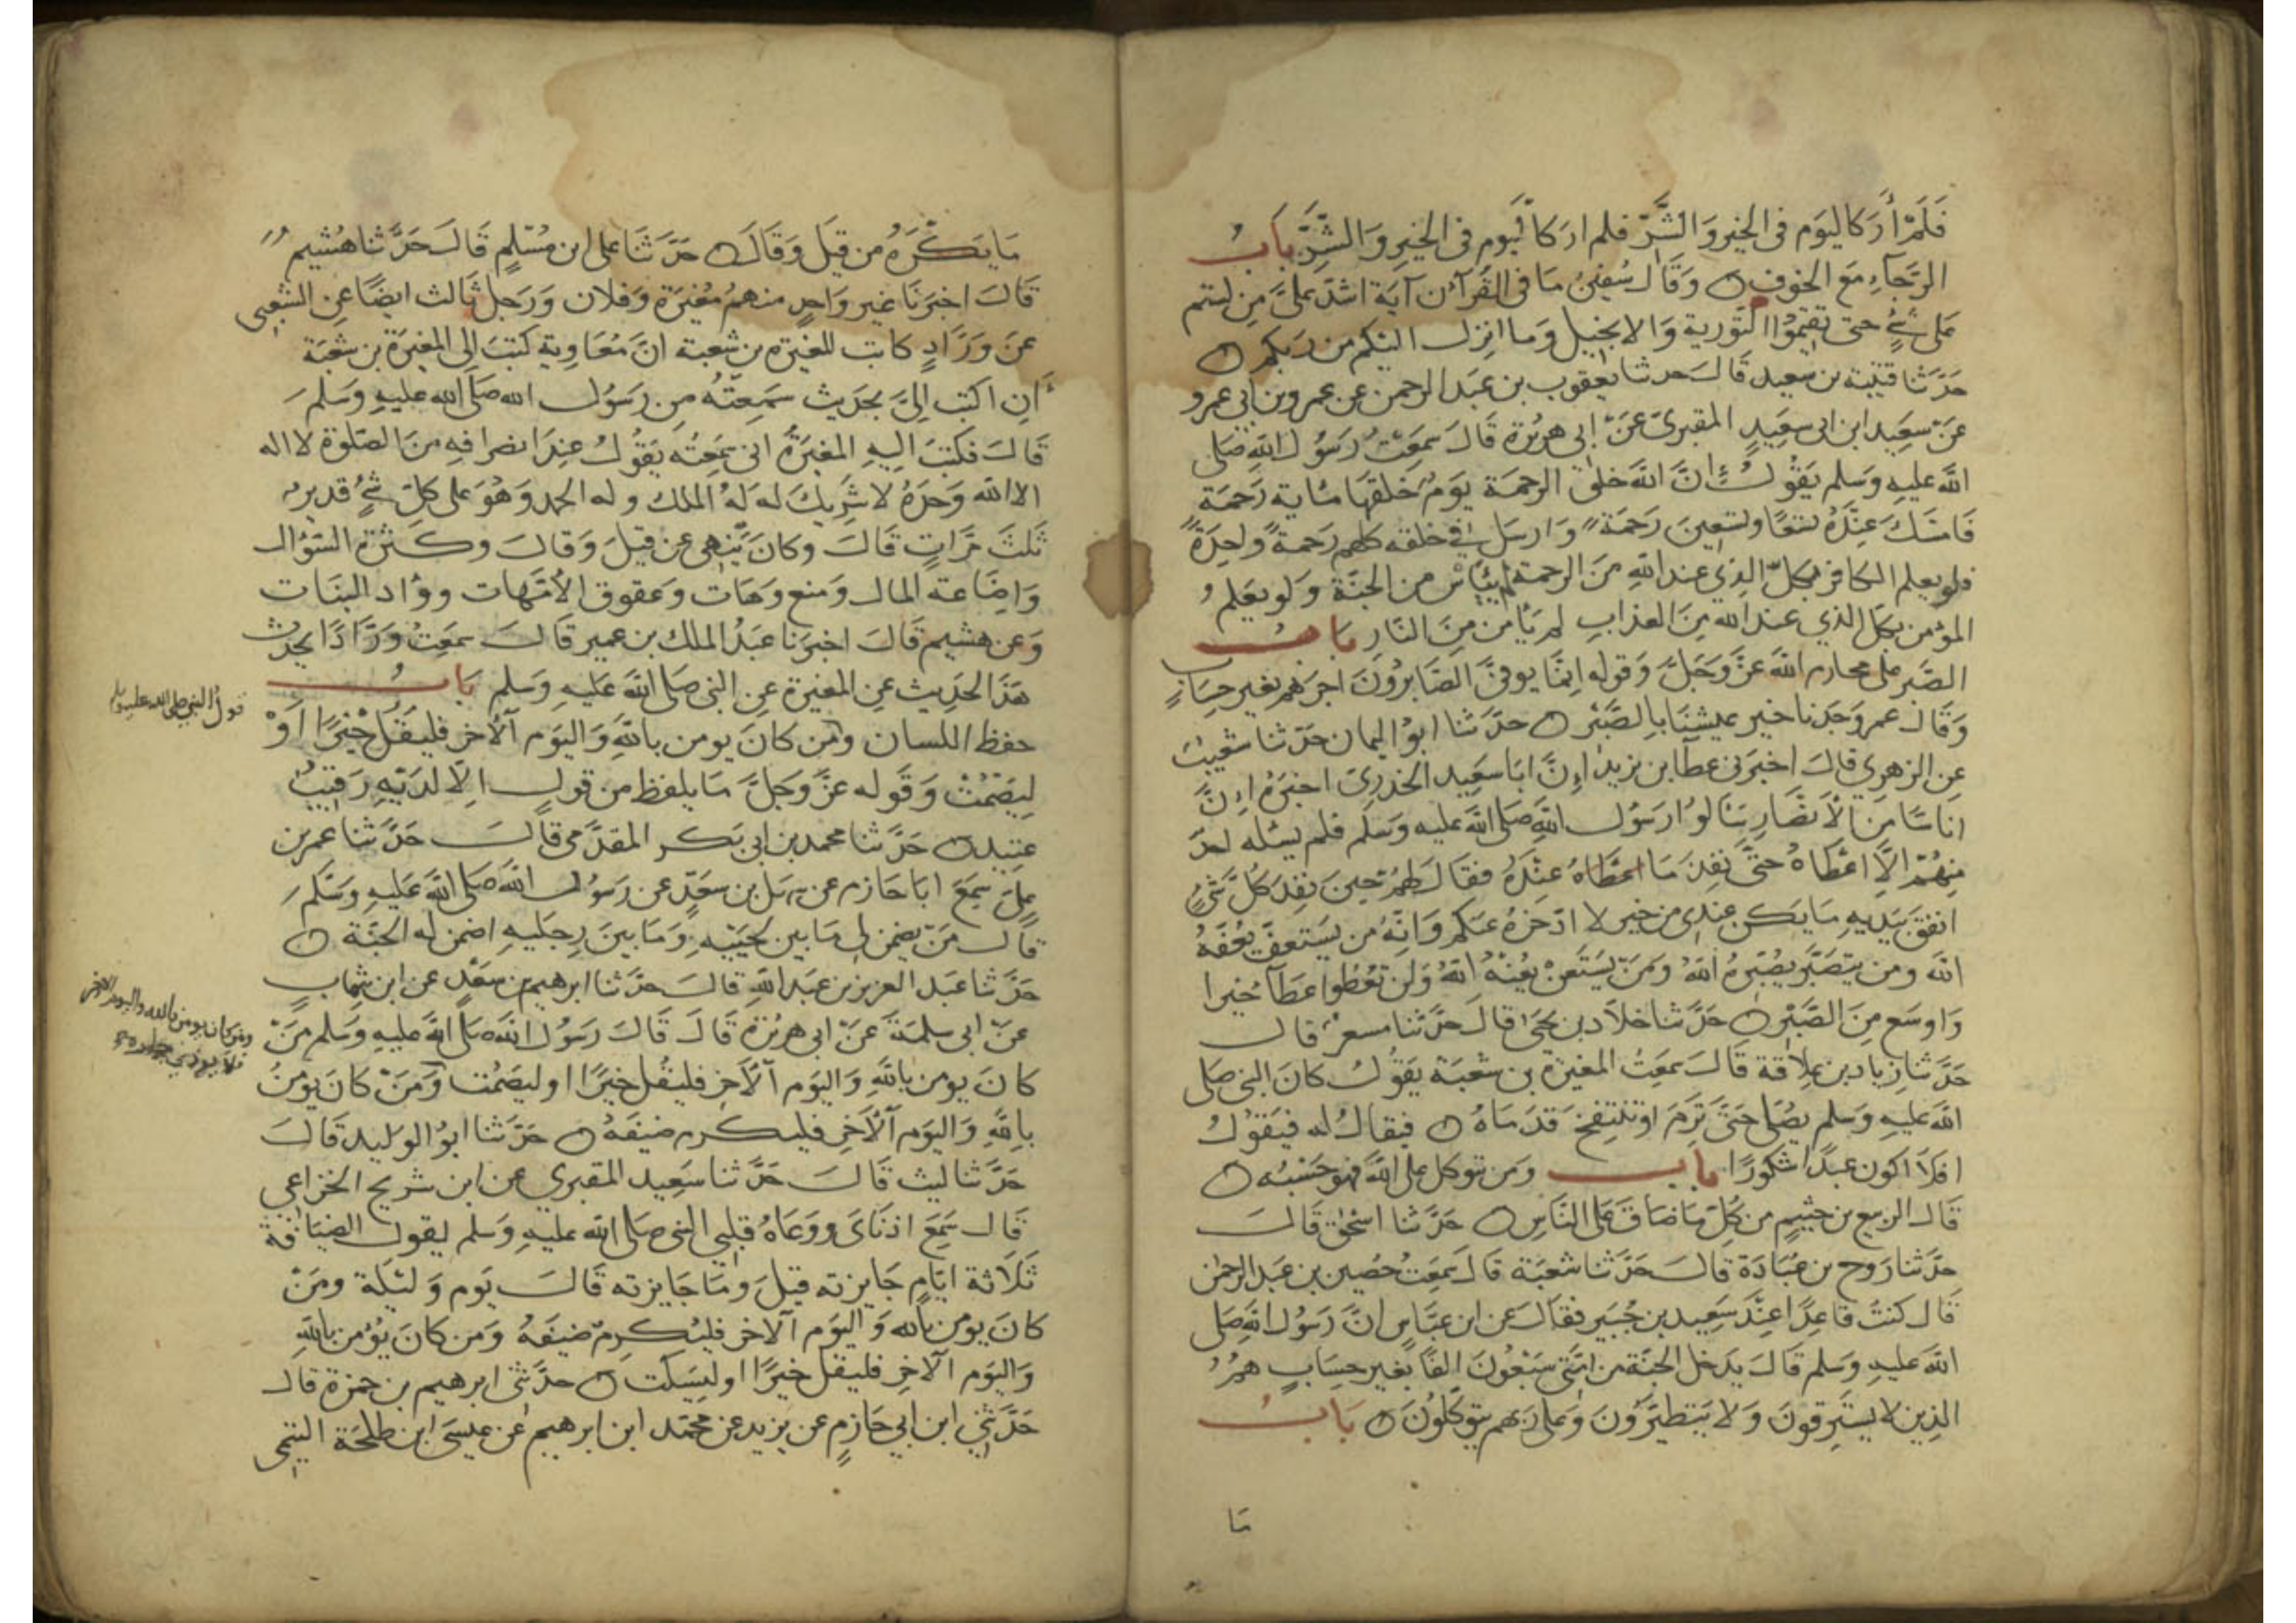 فَلَمْ أَرَ كاليَوم في الخير وَالشَّرِّ فلم ارَ كاليَوم في الخَيرِ وَالشَّرِّ بَابُ
الرَّجَآءِ مَعَ الخوفِ وَقَالَ سُفين مَا في القُرآن آيَة اشدّ عَلىَّ مِن لستم
عَلى شئٍ حتى تقيمُوا التَّورية وَالانجيل وَما انزل اليكم من رَبكم
حَدّثَنا قتيبة بن سَعِيد قَالَ حدثنا يَعقوب بن عبَد الرحمن عن عمرو بن ابي عمرو
عَن سعِيد ابن ابي سعِيدٍ المقبرىّ عَنْ ابي هريرة قَالَ سمِعَتُ رَسُول اللهِ صَلى
اللهَ عليهِ وَسَلم يَقُولُ إنَّ اللهَ خلَق الرحمَة يَومَ خَلقَهَا مايَة رَحمَةٍ
فَامسَكَ عِندَهُ تسعًا وتسعِينَ رَحمَةً وَارسَلَ في خلقه كلهم رَحمةً واحِدَةً
فلو يعلم الكافر بكلّ الذِي عند اللهِ مِنَ الرحمة لم يَيأسْ من الجنّة وَلو يعَلم
المؤمن بكلّ الذي عند الله مِنَ العذابِ لم يَأمَن مِنَ النّارِ بَابُ
الصّبرِ على محارم اللهَ عَزَّ وَجَلَّ وَقوله اِنَّما يوفىَّ الصَّابرُونَ اجرَهم بغير حِسَابٍ
وَقَالَ عمر وَجَدنا خير عيشِنَا باِلصَّبْرِ حدَّثنا ابوُ اليمان حَدّثنا شعَيبُ
عِن الزهرِي قالَ اخبرَني عطآ ابن يزيد اِنَّ ابَا سَعِيد الخدرِىّ اخبَرَهُ اِنَّ
انَاسًا مِنَ الْأَنصَارِ سَألوُا رَسُول اللهِ صَلى اللهَ عَليه وَسَلم فلم يسئله احدٌ
مِنهُمْ اِلاَّ اعْطَاهُ حتىَّ نَفِدَ مَا عنْدَهُ فقَالَ لهُمْ حِينَ نفِدَ كلُّ شئٍ
انفقَ بَيَديهِ مَا يَكن عِندِي من خيرٍ لا ادّخرهُ عنَكم وَانَّهُ من يَستَعِفّ يُعفّهُ
الله ومن يَتصَبّر يُصَبّرهُ اللهُ وَمَن يَسْتَغن يُغْنهُ اللهُ وَلَن تُعْطَوا عَطَآءً خيرا
وَاوسَع مِنَ الصَّبْرِ حَدَّثنا خلاّد بن يَحيَىٰ قالَ حَدَّثنا مسعَرٌ قالَ
حَدَّثنا زياد بن عِلاَقة قَالَ سمِعَتُ المغيرَة بن شعْبَة يَقُولُ كانَ النبي صَلى
اللهَ عَليهِ وَسَلم يصَلي حَتىّ تَرِمَ اوتنتفخَ قدَمَاهُ فيقالُ له فيَقوُلُ
افلاَ اكون عَبدًا شكورًا بَابُ وَمَن يتوكل على اللهَ فهوحَسْبُه
قَالَ الربيع بن خثيمٍ من كُلّ مَا ضَاقَ عَلَى النَّاسِ حَدَّثنا اسْحٰق قَالَ
حدَّثنا رَوح بن عُبَادَة قالَ حَدّثنا شعْبَة قَالَ سَمِعَتُ حصَين بن عَبد الرحمٰن
قَالَ كنتُ قاعِدًا عِنْدَ سَعِيد بن جُبَير فقالَ عَن ابن عبَّاسٍ انَّ رَسُول اللهِ صَلى
اللهَ عَليهِ وَسَلم قَالَ يدَخل الجنّة من امَّتي سَبْعُونَ الفًا بغَير حِسَابٍ همُ
الذِين لا يستَرقونَ وَلا يَتَطيَّرُونَ وَعَلى رَبهم يتَوكلُونَ بَابُ
مَا
مَا يَكْرَهُ من قِيلَ وَقَالَ حَدّثنَا على ابن مُسْلمٍ قَالَ حَدَّثنا هُشيم
قَالَ اخبَرنَا غير وَاحدٍ منهمُ مُغيَرة وَفلان وَرَجل ثالث ايضًا عِن الشّعبى
عَن وَرّادٍ كاتب للمغيره بن شعبة انَّ مُعَاوية كتبَ اِلى المغيَرَة بن شعْبَة
أنِ اكتب اِلىَّ بحَديث سَمِعتَهُ مِن رَسُول الله صَلى الله عليهِ وَسَلم
قَالَ فكتبَ اليهِ المغيَرَةُ انى سَمِعتُه يَقُولُ عِندَ انصرافهِ مِنَ الصّلوٰة لا اله
الا الله وَحدَهُ لا شَرِيكَ له لَهُ الملك وله الحمد وَهُوَ على كلّ شئٍ قدير
ثلثَ مَرَّاتٍ قَالَ وكانَ يَنهي عن قيلَ وَقالَ وكثرة السَّؤال
وَاضَاعَة المال وَمنع وَهَات وَعقوق الأمّهات ووأد البَنَات
وَعن هشيم قَالَ اخبرَنا عَبَدُ الملك بن عمير قَالَ سمعَتُ وَرَّادًا يحدّث
هَذَا الحَدِيث عنِ المغيرة عِن النبي صَلى اللهَ عَليهِ وَسَلم بَابُ
قول النبي صلى الله عليه وسلم
حفظ اللسَان ومَن كانَ يومن باللهِ وَاليوَم الآخر فليَقل خيرًا اَوْ
ليَصْمُتْ وَقَوله عزَّ وَجَلَّ مَا يلفظ من قول اِلاّ لدَيْهِ رَقيبٌ
عَتيد حَدَّثنا محمد بن ابى بَكر المقدَّمى قالَ حَدَّثنا عمر بن
عَلىّ سَمِعَ ابَا حَازم عن سَهل بن سَعدٍ عن رَسوُل الله صَلى اللهَ عَليهِ وَسَلم
قَالَ مَنْ يضمن لى مَا بين لحيَيْهِ وَمَا بينَ رِجليهِ اضمن له الجنّة
حَدَّثنا عَبَد العزيز بن عَبد اللهِ قَالَ حَدَّثنا ابرهيم بن سَعْدٍ عن ابن شِهابٍ
عَن ابى سلمَةَ عَنْ ابي هريْرة قَالَ قَالَ رَسُول الله صَلى اللهَ عَليهِ وَسَلم مَنْ
كانَ يومن باللهِ وَاليَوم الآخِرِ فليقل خيرًا اوليصمُت وَمَنْ كانَ يومنُ
ومن كان يومن بالله واليوم الاخر
فلا يوذي جاره
باِللهِ وَاليَوم الآخِرِ فليكرم ضيفَهُ حَدّثنا ابوُ الوليد قَالَ
حَدَّثنا ليث قَالَ حَدَّثنا سَعِيد المقبري عن ابن شريح الخزاعي
قَالَ سَمِعَ اذنَاىَ ووَعَاهُ قلبي النبى صَلى الله عَليهِ وَسَلم يقول الضيَافة
ثَلاَثة ايّامٍ جَايزته قيلَ ومَا جَايزته قَالَ يَوم وَليْلَة ومَن
كانَ يومن بالله وَاليوَم الآخر فليُكرِم ضيفَهُ وَمن كانَ يُؤمن باللهِ
وَاليوَم الآخِرِ فليقل خيرًا اوليَسكت حدَّثنى ابرهيم بن حمزة قالَ
حَدَّثني ابن ابي حَازمٍ عن يزيد عن محمّد ابن ابرهيم عن عيسَى ابن طلحَة التيمى